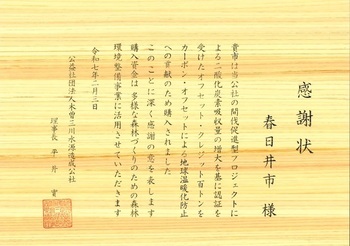 感謝状
春日井市 様
貴市は当公社の間伐促進型プロジェクトに
よる二酸化炭素吸収量の増大を基に認証を
受けたオフセット・クレジット百トンを
カーボン・オフセットによる地球温暖化防止
への貢献のため購入されました
このことに深く感謝の意を表します
購入資金は多様な森林づくりのための森林
環境整備事業に活用させていただきます
令和七年二月三日
公益社団法人木曽三川水源造成公社
理事長 平丹 實